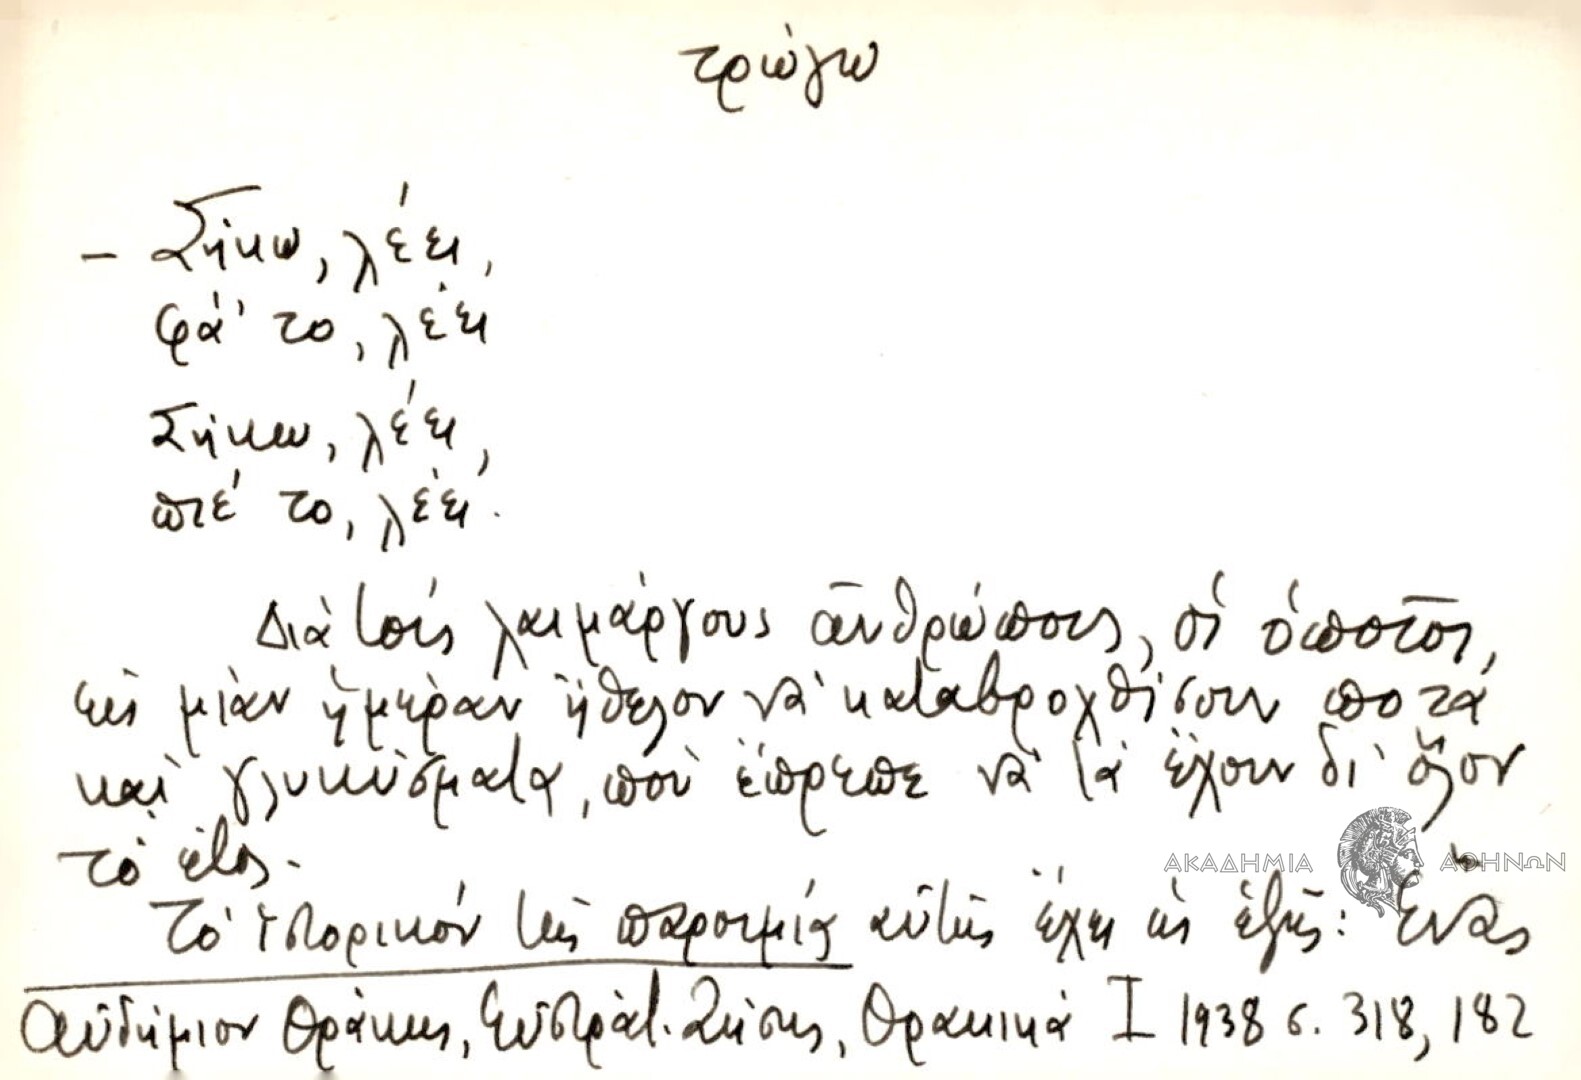 τρώγω
– Σήκω, λέει,
φά' το, λέει
Σήκω, λέει,
πιέ το, λέει.
Διὰ τοὺς λαιμάργους ἀνθρώπους, οἱ ὁποῖοι,
εἰς μίαν ἡμέραν ἤθελον νὰ καταβροχθίσουν ποτά
καὶ γλυκύσματα, ποὺ ἔπρεπε νὰ τὰ ἔχουν δι' ὅλον
τὸ ἔτος.
ΑΚΑΔΗΜΙΑ ΑΘΗΝΩΝ
Τὸ ἱστορικόν τῆς παροιμίας αὐτῆς ἔχει ὡς ἑξῆς: Ἕνας
Αὐδήμιον Θράκης, Εὐστράτ. Ζήσης, Θρακικά I 1938 σ. 318, 182